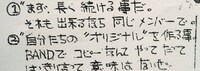 ①"まず、長く続ける事だ。
それも出来るなら同じメンバーで。
②"自分たちの"オリジナル"を作る事。
BANDで コピーなんて やってだて
はっきり言って 意味はないぜ。